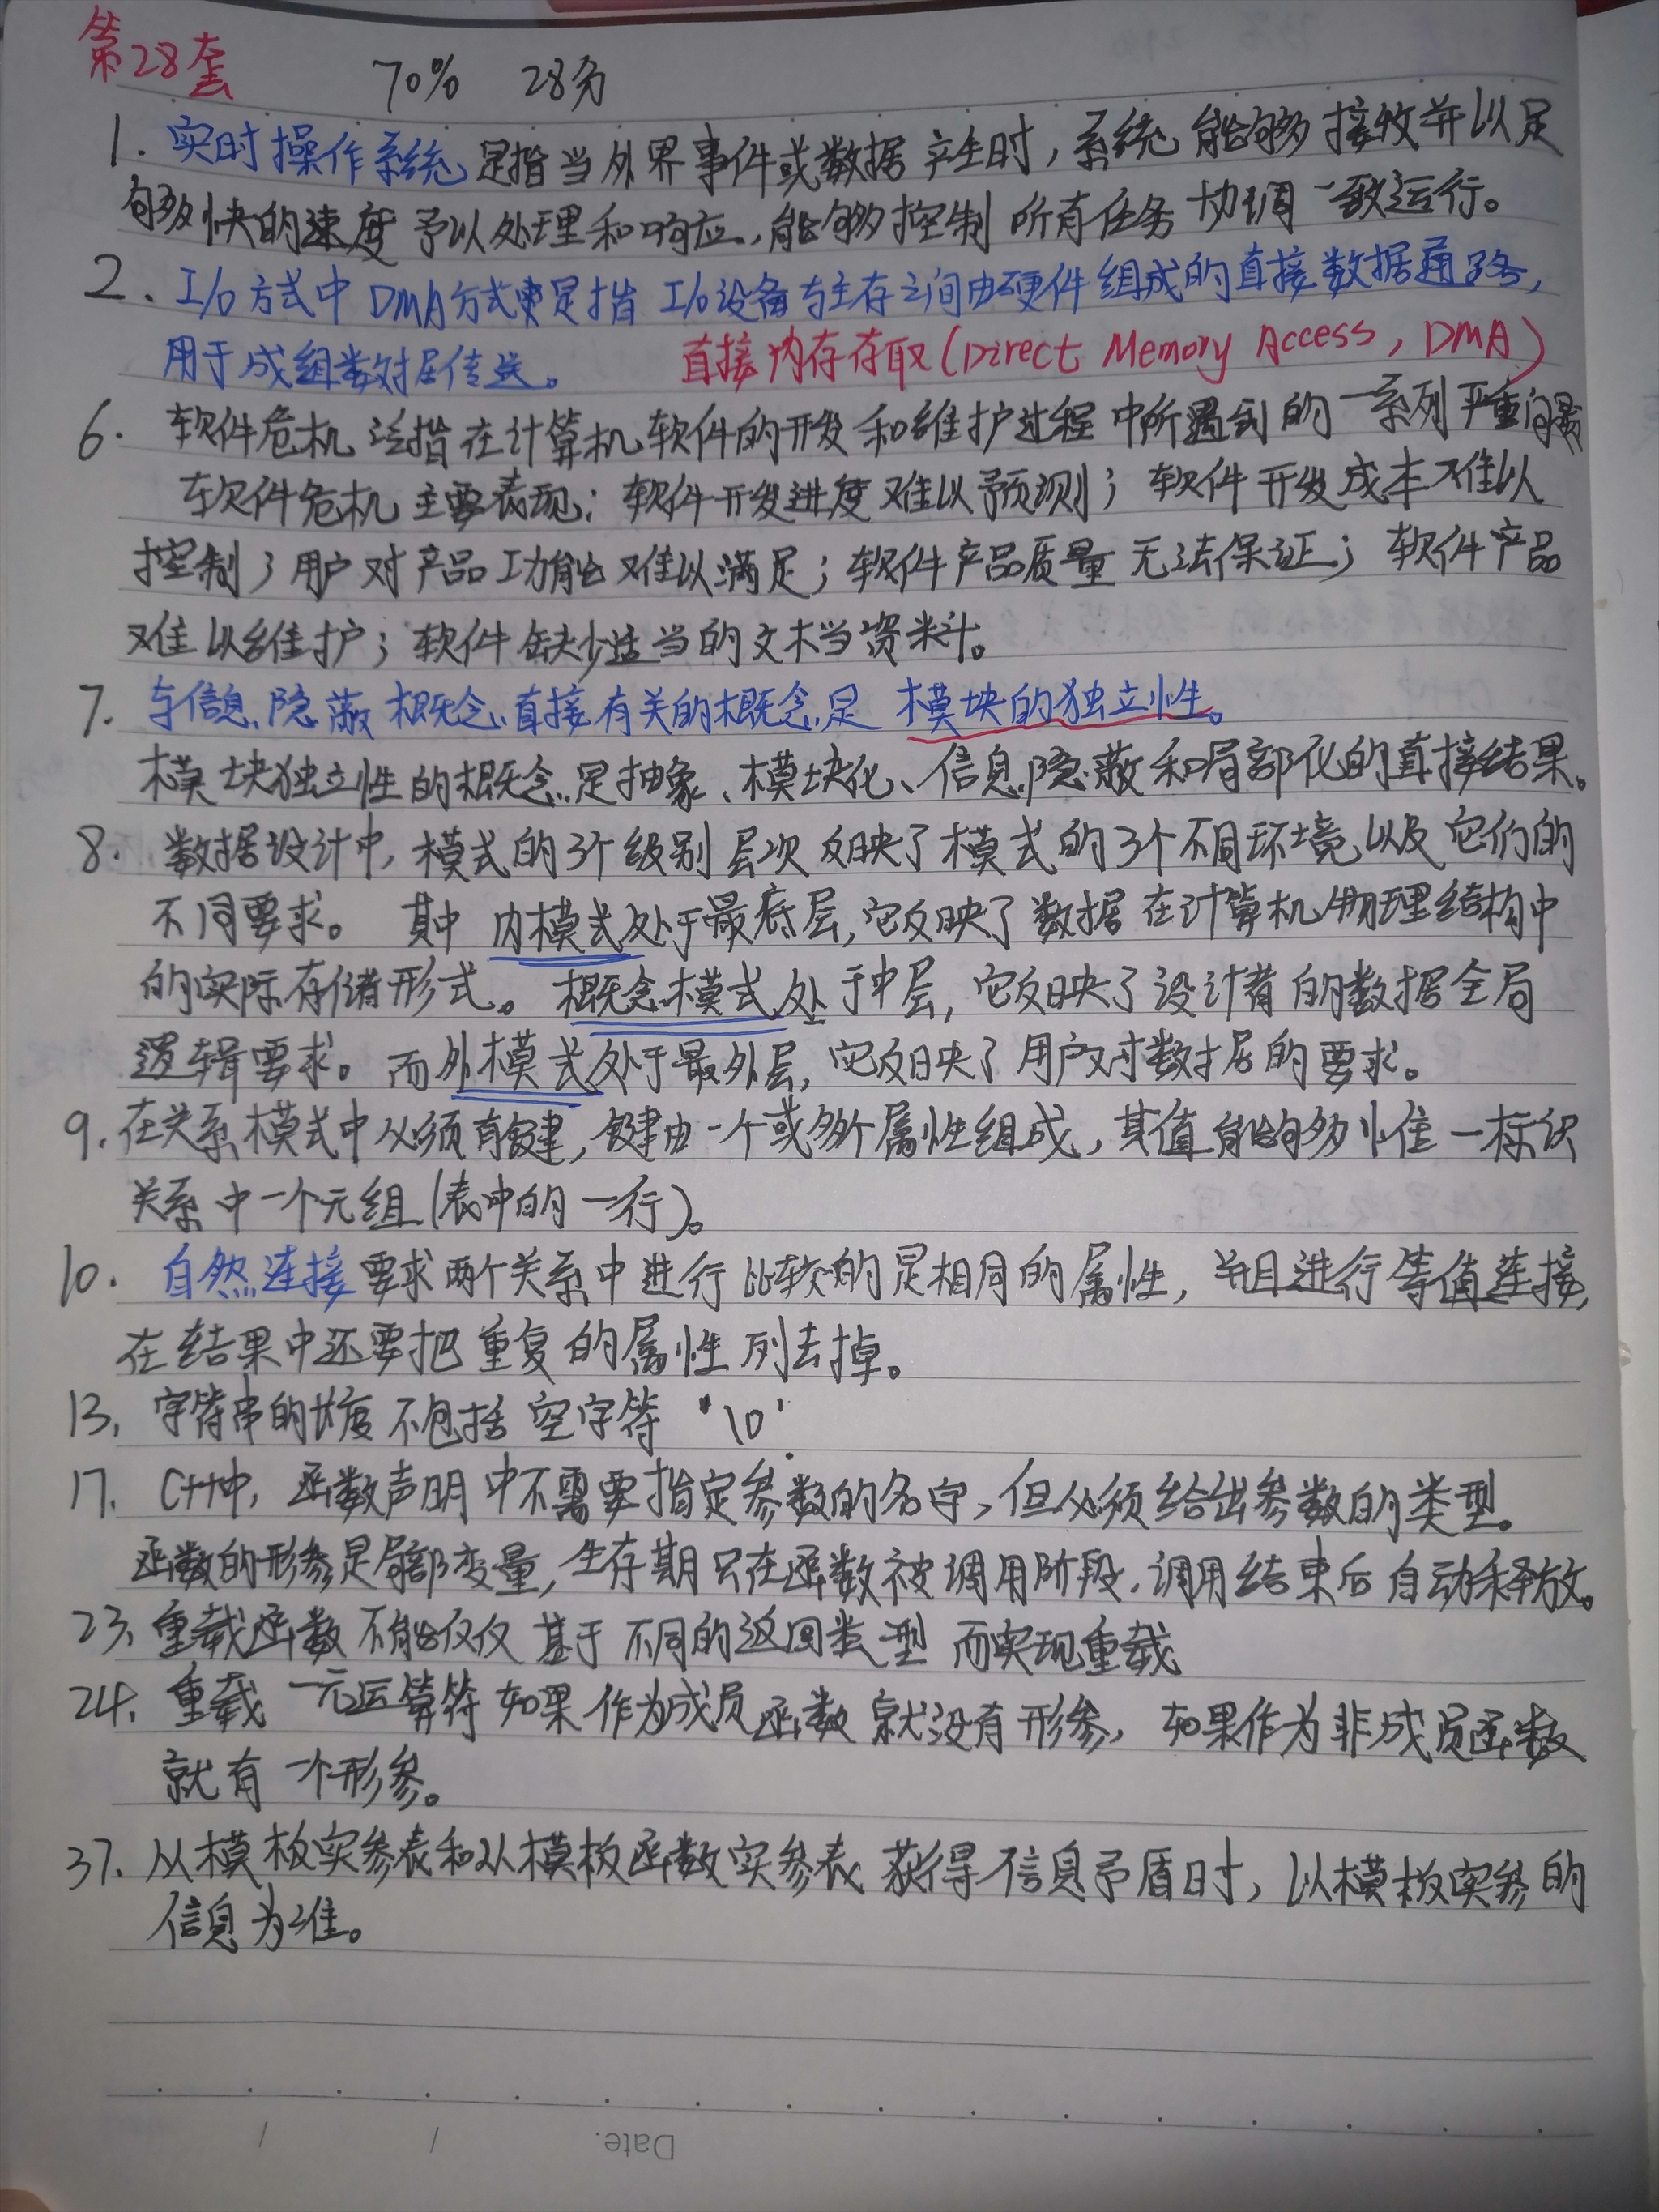 第28套 70% 28分
1. 实时操作系统是指当外界事件或数据产生时,系统能够接收并以足
够快的速度予以处理和响应,能够控制所有任务协调一致运行。
2、I/O方式中DMA方式是指I/O设备与主存之间由硬件组成的直接数据通路,
用于成组数据传送。 直接内存存取(Direct Memory Access, DMA)
6. 软件危机泛指在计算机软件的开发和维护过程中所遇到的一系列严重问题
软件危机主要表现:软件开发进度难以预测;软件开发成本难以
控制;用户对产品功能难以满足;软件产品质量无法保证;软件产品
难以维护;软件缺少适当的文档资料。
7. 与信息隐蔽概念直接有关的概念是 模块的独立性。
模块独立性的概念是抽象、模块化、信息隐蔽和局部化的直接结果。
8. 数据设计中,模式的3个级别层次反映了模式的3个不同环境以及它们的
不同要求。 其中 内模式处于最底层,它反映了数据在计算机物理结构中
的实际存储形式。概念模式处于中层,它反映了设计者的数据全局
逻辑要求。而外模式处于最外层,它反映了用户对数据的要求。
9. 在关系模式中必须有键,键由一个或多个属性组成,其值能够唯一标识
关系中一个元组(表中的一行)。
10. 自然连接要求两个关系中进行比较的是相同的属性,并且进行等值连接,
在结果中还要把重复的属性列去掉。
13, 字符串的长度不包括空字符 '\0'
17. C++中,函数声明中不需要指定参数的名字,但必须给出参数的类型。
函数的形参是局部变量,生存期只在函数被调用阶段,调用结束后自动释放。
23、重载函数不能仅仅基于不同的返回类型而实现重载
24, 重载一元运算符如果作为成员函数就没有形参,如果作为非成员函数
就有一个形参。
37. 从模板实参表和从模板函数实参表获得信息矛盾时,以模板实参的
信息为准。
Date. / /